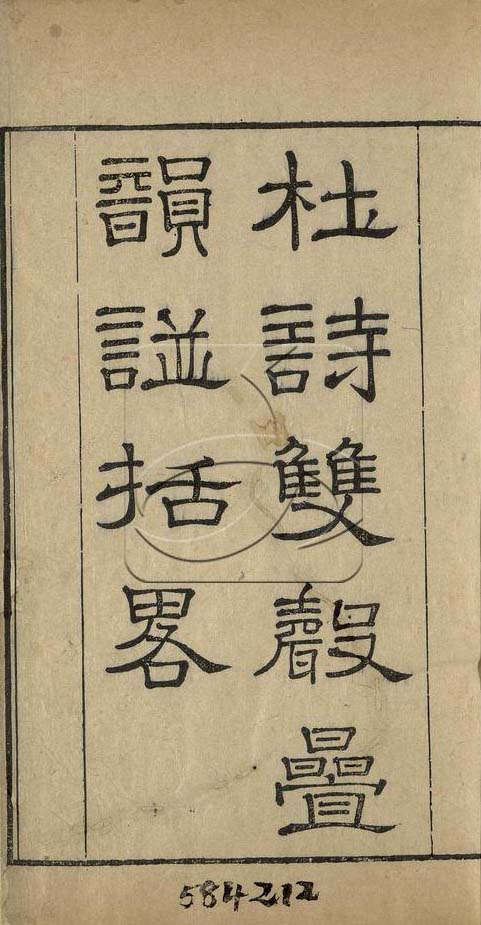 杜詩雙聲疊
韻譜括畧
584212